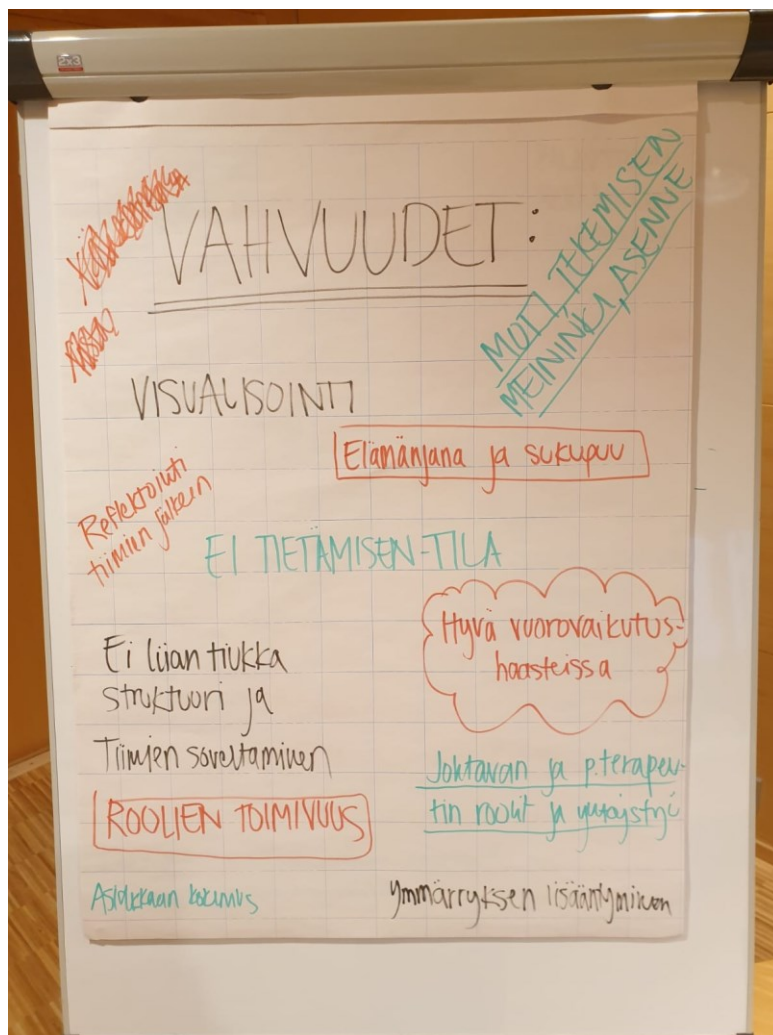 2x3
VAHVUUDET:
MOTI, TEKEMISEN
MEININKI, ASENNE
VISUALISOINTI
Elämänjana ja sukupuu
Reflektointi
tiimien jälkeen
EI TIETÄMISEN-TILA
Hyvä vuorovaikutus-
haasteissa
Ei liian tiukka
struktuuri ja
Tiimien soveltaminen
Johtavan ja p.terapeu-
tin roolit ja yhteistyö
ROOLIEN TOIMIVUUS
Asiakkaan kokemus
Ymmärryksen lisääntyminen